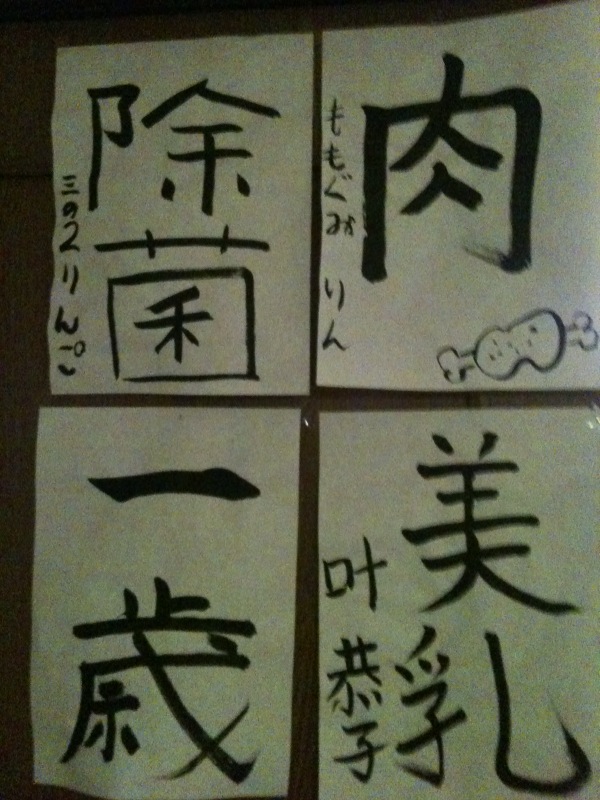 除菌
三の2りんご
肉
ももぐみ りん
一歳
美乳
叶 恭子